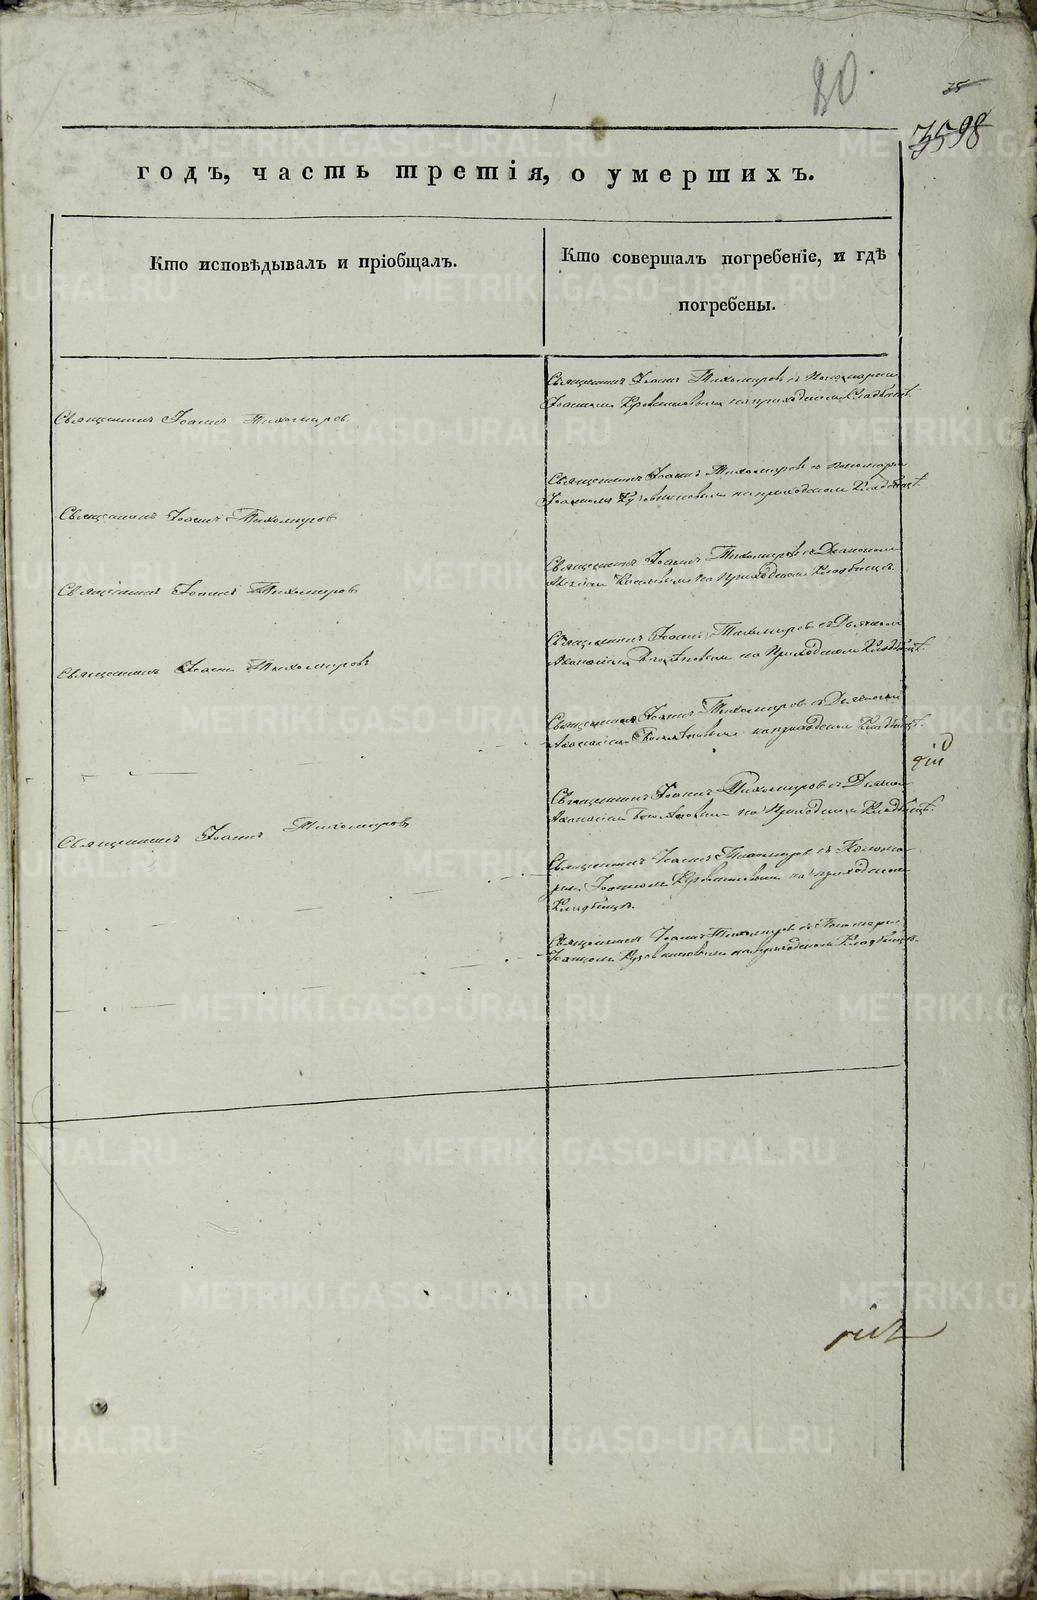 80.
38
35 98
годъ, часть третія, о умершихъ.
Кто исповѣдывалъ и пріобщалъ.
Кто совершалъ погребеніе, и гдѣ
погребены.
Священникъ Іоаннъ Тихомировъ съ Пономаремъ
Іоанномъ на приходскомъ Кладбищѣ.
Священникъ Іоаннъ Тихомировъ.
Священникъ Іоаннъ Тихомировъ съ пономаремъ
Іоанномъ на приходскомъ Кладбищѣ.
Священникъ Іоаннъ Тихомировъ
Священникъ Іоаннъ Тихомировъ съ Діакономъ
на Приходскомъ Кладбищѣ.
Священникъ Іоаннъ Тихомировъ
Священникъ Іоаннъ Тихомировъ съ Дьячкомъ
на Приходскомъ Кладбищѣ.
Священникъ Іоаннъ Тихомировъ
Священникъ Іоаннъ Тихомировъ съ Дьячкомъ
Аѳанасіемъ на приходскомъ Кладбищѣ.
Священникъ Іоаннъ Тихомировъ съ Дьячкомъ
Аѳанасіемъ на Приходскомъ Кладбищѣ.
Священникъ Іоаннъ Тихомировъ
Священникъ Іоаннъ Тихомировъ съ Понома-
ремъ Іоанномъ на приходскомъ
Кладбищѣ.
Священникъ Іоаннъ Тихомировъ съ Пономаремъ
Іоанномъ на приходскомъ Кладбищѣ.
METRIKI.GASO-URAL.RU